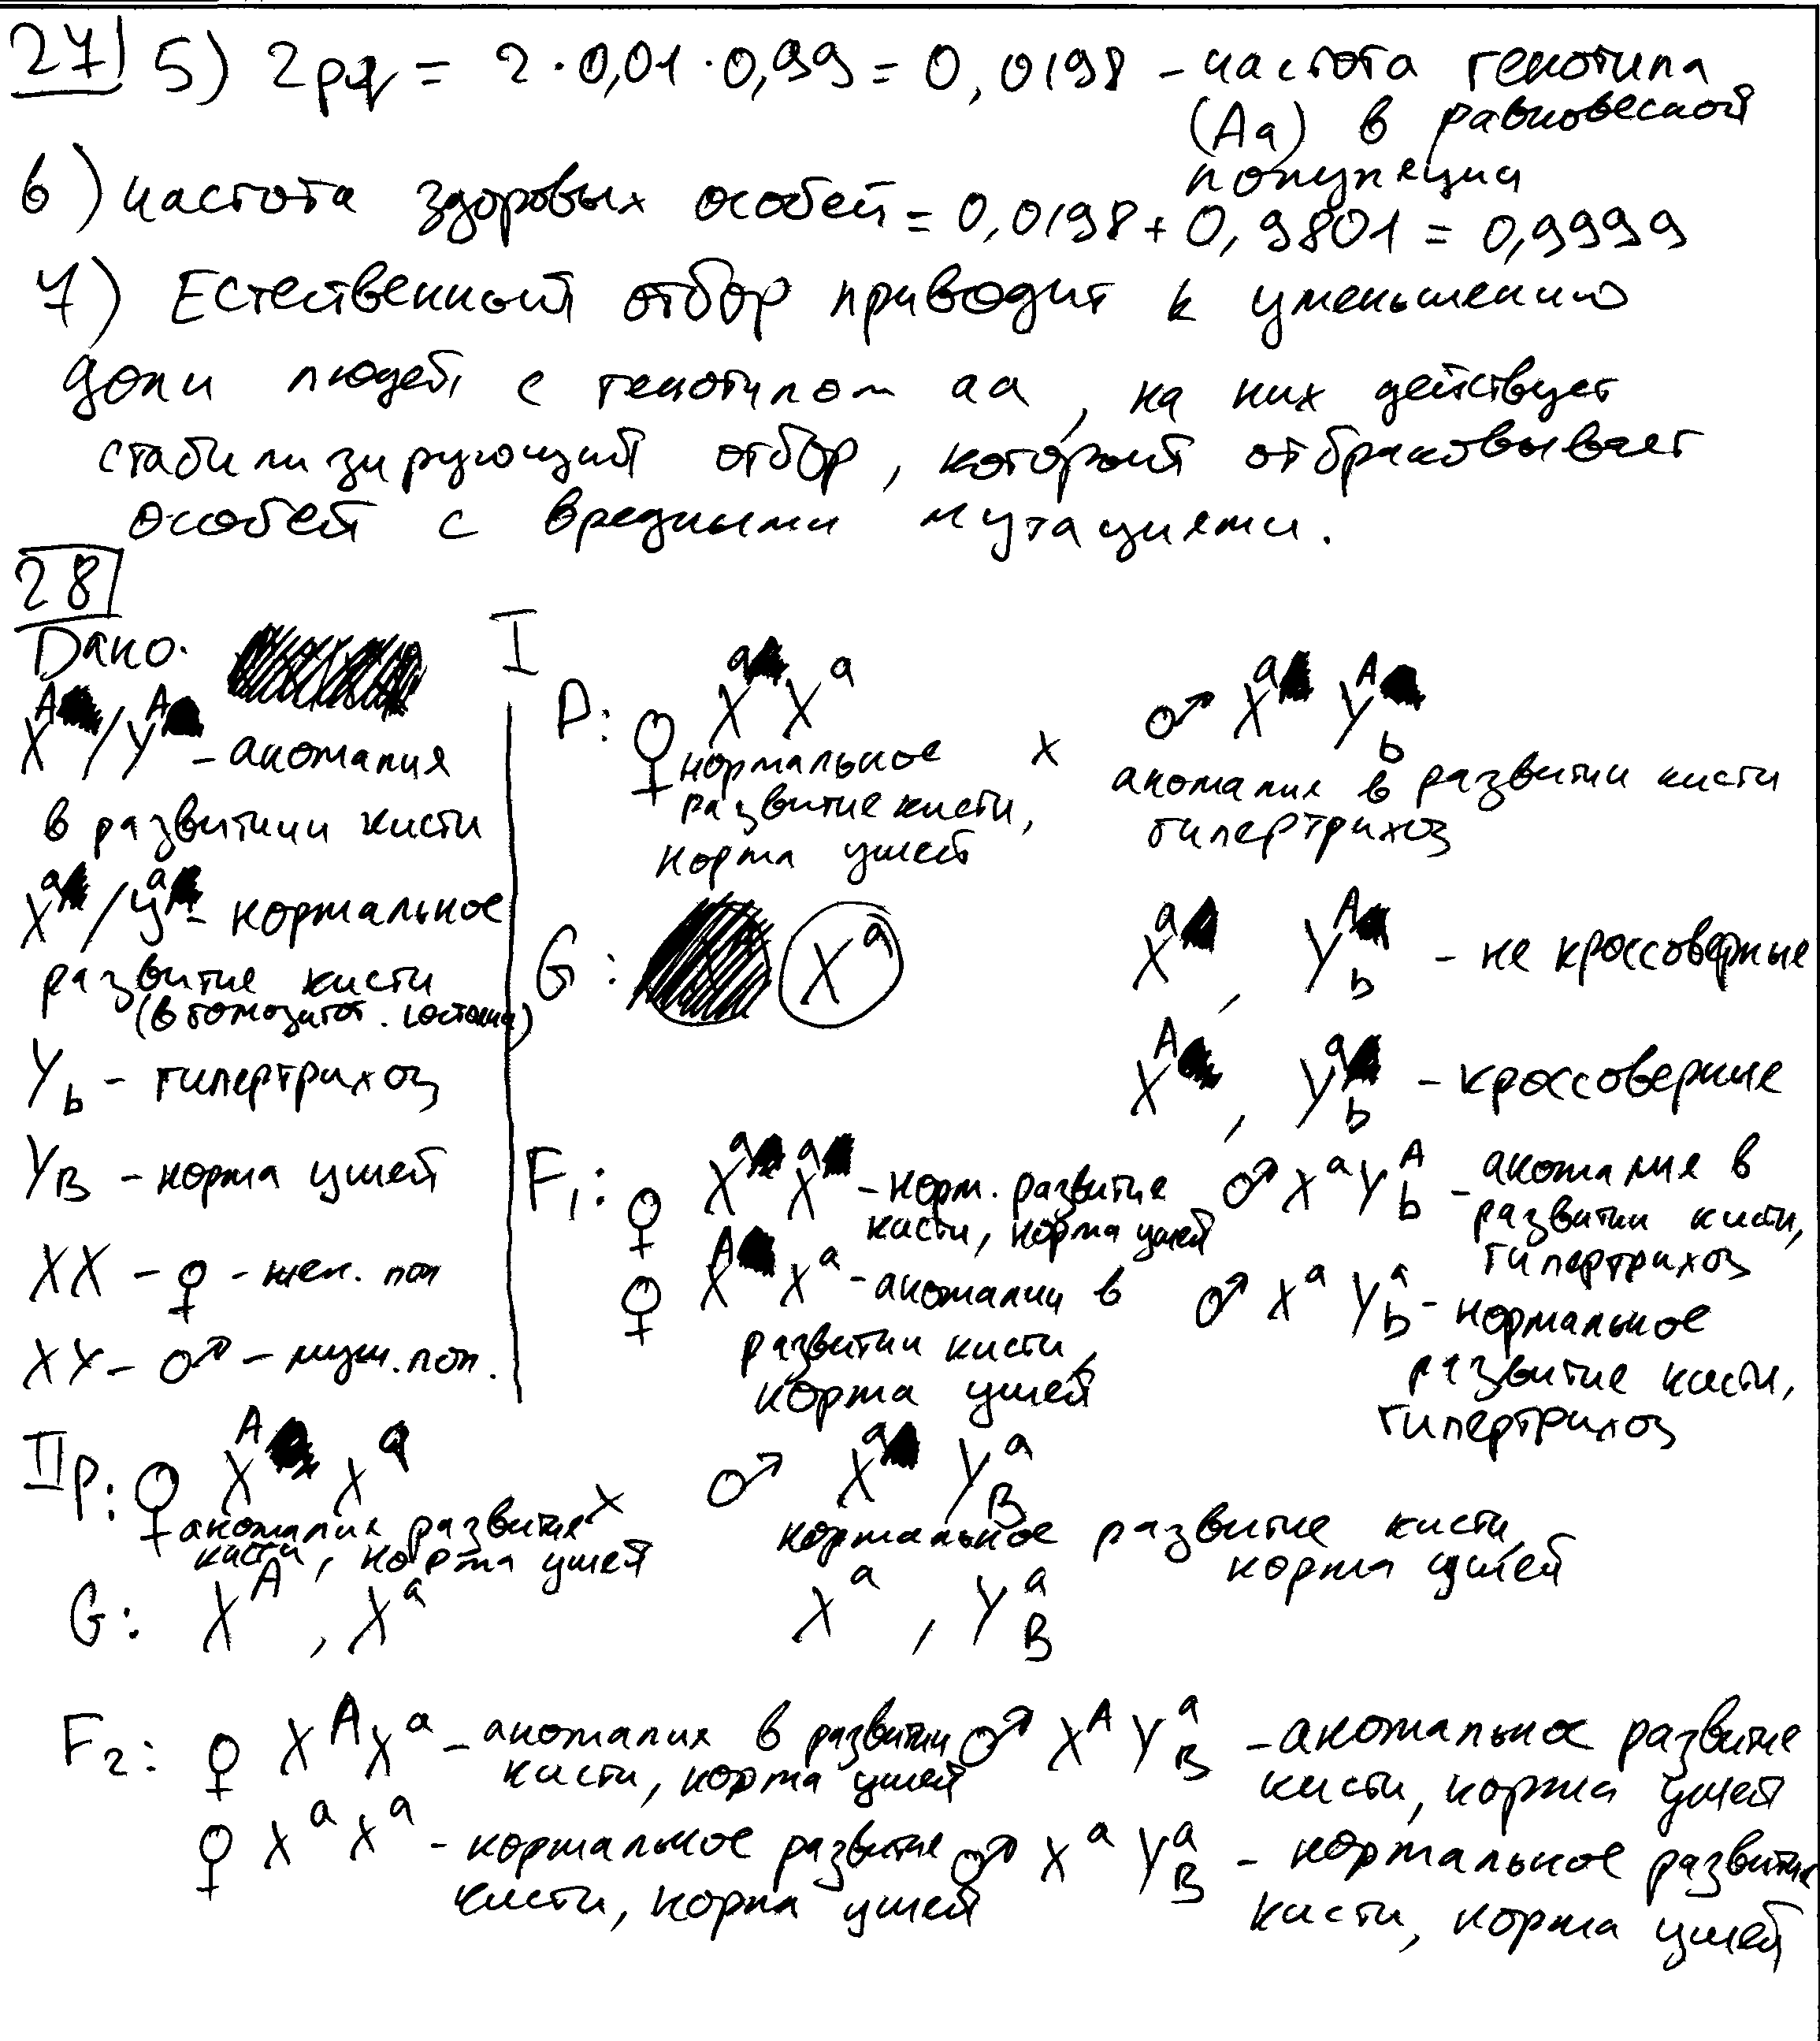 27) 5) 2pq = 2 · 0,01 · 0,99 = 0,0198 – частота генотипа
(Aa) в равновесной
популяции
6) частота здоровых особей = 0,0198 + 0,9801 = 0,9999
7) Естественный отбор приводит к уменьшению
доли людей с генотипом аа, на них действует
стабилизирующий отбор, который отбраковывает
особей с вредными мутациями.
28
Дано.
X^A / Y^A – аномалия
в развитии кисти
X^a / Y^a – нормальное
развитие кисти
(в гомозигот. состояни)
Y_b – гипертрихоз
Y_B – норма ушей
XX – ♀ – жен. пол
XY – ♂ – муж. пол.
I
P: ♀ X^a X^a x ♂ X^a Y^A_b
нормальное развитие кисти, норма ушей
аномалия в развитии кисти гипертрихоз
G: X^a
X^a, Y^A_b – не кроссоверные
X^A, Y^a_b – кроссоверные
F₁: ♀ X^a X^a – норм. развитие кисти, норма ушей
♂ X^a Y^A_b – аномалия в развитии кисти, гипертрихоз
♀ X^A X^a – аномалии в развитии кисти, норма ушей
♂ X^a Y^a_b – нормальное развитие кисти, гипертрихоз
II P: ♀ X^A X^a x ♂ X^a Y^a_B
аномалия развития кисти, норма ушей
нормальное развитие кисти, норма ушей
G: X^A, X^a X^a, Y^a_B
F₂: ♀ X^A X^a – аномалия в развитии кисти, норма ушей
♂ X^A Y^a_B – аномальное развитие кисти, норма ушей
♀ X^a X^a – нормальное развитие кисти, норма ушей
♂ X^a Y^a_B – нормальное развитие кисти, норма ушей